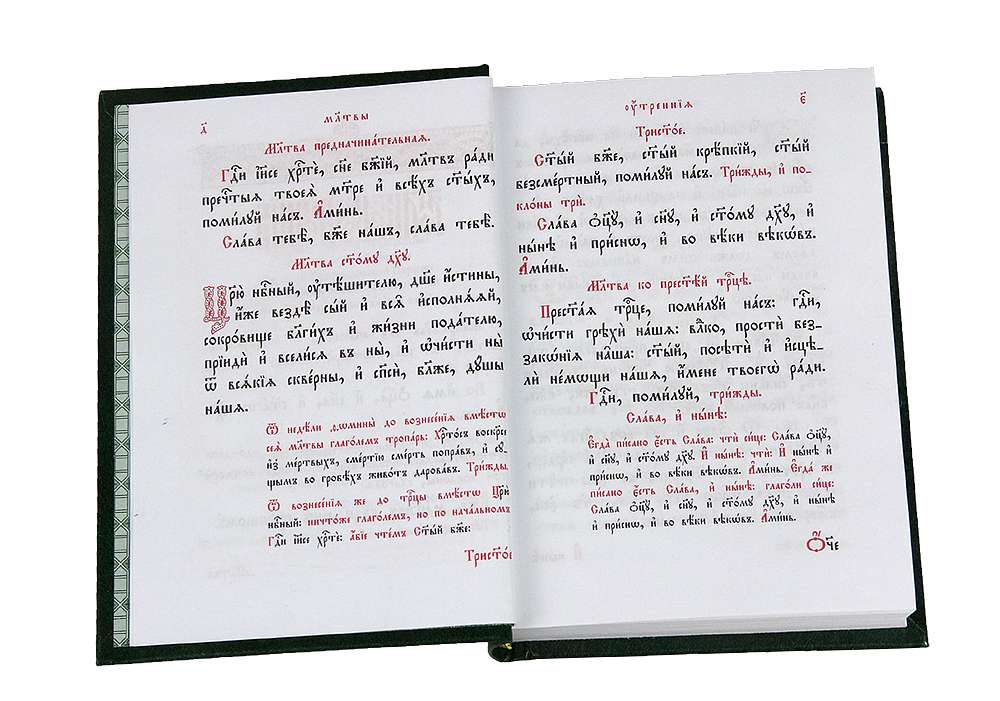 д҃
мл҃твы
Мл҃тва предначина́тельная.
Гдⷭ҇и і҆и҃се хрⷭ҇тѐ, сн҃е бж҃їй, мл҃твъ ра́ди
пречⷭ҇тыя твоеѧ̀ мт҃ре и҆ всѣ́хъ ст҃ы́хъ,
поми́лꙋй на́съ. А҆ми́нь.
Сла́ва тебѣ̀, бж҃е на́шъ, сла́ва тебѣ̀.
Мл҃тва ст҃о́мꙋ дх҃ꙋ.
Цр҃ю̀ нбⷭ҇ный, ᲂу҆тѣ́шителю, дш҃е и҆́стины,
и҆́же вездѣ̀ сы́й и҆ всѧ̑ и҆сполнѧ́ѧй,
сокро́вище бл҃ги́хъ и҆ жи́зни пода́телю,
прїидѝ и҆ всели́сѧ въ ны̀, и҆ ѡ҆чи́сти ны̀
ѿ всѧ́кїѧ скве́рны, и҆ сп҃сѝ, бл҃же, дꙋ́шы
на́шѧ.
Ѿ недѣ́ли ѳѡмины̀ до вознесе́нїѧ вмѣ́стѡ
сеѧ̀ мл҃твы глаго́лемъ тропа́рь: Хрⷭ҇то́съ воскре́се
и҆з̾ ме́ртвыхъ, сме́ртїю сме́рть попра́въ, и҆ сꙋ́-
щымъ во гробѣ́хъ живо́тъ дарова́въ. Три́жды
Ѿ вознесе́нїѧ же до трⷪ҇цы вмѣ́стѡ Цр҃ю̀
нбⷭ҇ный: ничто́же глаго́лемъ, но по нача́льномъ
Гдⷭ҇и і҆и҃се хрⷭ҇тѐ: а҆́бїе чте́мъ Ст҃ы́й бж҃е:
Трист҃о́е
ᲂу҆́треннїѧ
є҃
Трист҃о́е.
Ст҃ы́й бж҃е, ст҃ы́й крѣ́пкїй, ст҃ы́й
безсме́ртный, поми́лꙋй на́съ. Три́жды, и҆ по-
кло́ны трѝ.
Сла́ва ѻ҆ц҃ꙋ̀, и҆ сн҃ꙋ, и҆ ст҃о́мꙋ дх҃ꙋ, и҆
ны́нѣ и҆ при́снѡ, и҆ во вѣ́ки вѣкѡ́въ.
А҆ми́нь.
Мл҃тва ко прест҃ѣ́й трⷪ҇цѣ.
Прест҃а́ѧ трⷪ҇це, поми́лꙋй на́съ: гдⷭ҇и,
ѡ҆чи́сти грѣхѝ на́шѧ: влⷣко, простѝ без-
закѡ́нїѧ на̑ша: ст҃ы́й, посѣтѝ и҆ и҆сцѣ-
лѝ не́мѡщи на́шѧ, и҆́мене твоегѡ̀ ра́ди.
Гдⷭ҇и, поми́лꙋй, три́жды.
Сла́ва, и҆ ны́нѣ:
Е҆гда̀ пи́сано є҆́сть Сла́ва: чтѝ си́це: Сла́ва ѻ҆ц҃ꙋ̀,
и҆ сн҃ꙋ, и҆ ст҃о́мꙋ дх҃ꙋ. И҆ ны́нѣ: чтѝ: И҆ ны́нѣ и҆
при́снѡ, и҆ во вѣ́ки вѣкѡ́въ. А҆ми́нь. Е҆гда́ же
пи́сано є҆́сть Сла́ва, и҆ ны́нѣ: глаго́ли си́це:
Сла́ва ѻ҆ц҃ꙋ̀, и҆ сн҃ꙋ, и҆ ст҃о́мꙋ дх҃ꙋ, и҆ ны́нѣ
и҆ при́снѡ, и҆ во вѣ́ки вѣкѡ́въ. А҆ми́нь.
Ѻ҆́тче